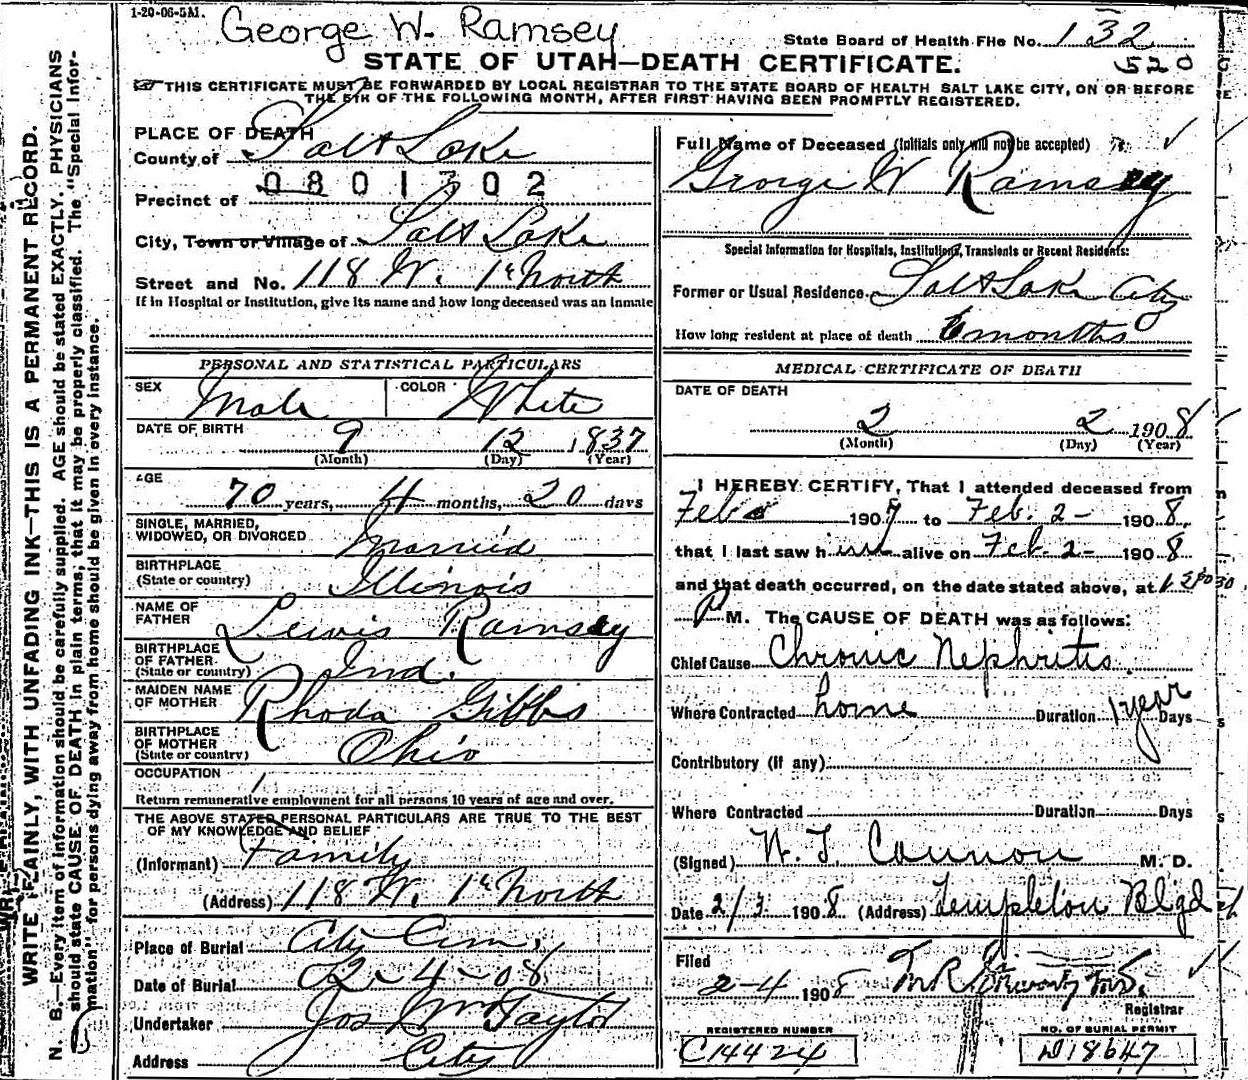 1-20-06-5M.
George W. Ramsey
State Board of Health File No. 132
520
STATE OF UTAH—DEATH CERTIFICATE.
THIS CERTIFICATE MUST BE FORWARDED BY LOCAL REGISTRAR TO THE STATE BOARD OF HEALTH SALT LAKE CITY, ON OR BEFORE
THE 5TH OF THE FOLLOWING MONTH, AFTER FIRST HAVING BEEN PROMPTLY REGISTERED.
WRITE PLAINLY, WITH UNFADING INK—THIS IS A PERMANENT RECORD.
N. B.—Every item of information should be carefully supplied. AGE should be stated EXACTLY. PHYSICIANS
should state CAUSE OF DEATH in plain terms; that it may be properly classified. The "Special Infor-
mation" for persons dying away from home should be given in every instance.
PLACE OF DEATH
County of Salt Lake
0801302
Precinct of
City, Town or Village of Salt Lake
Street and No. 118 W. 1st North
If in Hospital or Institution, give its name and how long deceased was an inmate
PERSONAL AND STATISTICAL PARTICULARS
SEX Male COLOR White
DATE OF BIRTH 9 12 1837
(Month) (Day) (Year)
AGE 70 years, 4 months, 20 days
SINGLE, MARRIED,
WIDOWED, OR DIVORCED Married
BIRTHPLACE
(State or country) Illinois
NAME OF
FATHER Lewis Ramsey
BIRTHPLACE
OF FATHER
(State or country) Ind.
MAIDEN NAME
OF MOTHER Rhoda Gibbs
BIRTHPLACE
OF MOTHER
(State or country) Ohio
OCCUPATION
Return remunerative employment for all persons 10 years of age and over.
THE ABOVE STATED PERSONAL PARTICULARS ARE TRUE TO THE BEST
OF MY KNOWLEDGE AND BELIEF
(Informant) Family
(Address) 118 W. 1st North
Place of Burial City Cem.
Date of Burial 2-4-08
Undertaker Jos Wm Taylor
Address City
Full Name of Deceased (Initials only will not be accepted)
George W Ramsey
Special Information for Hospitals, Institutions, Transients or Recent Residents:
Former or Usual Residence Salt Lake City
How long resident at place of death 6 months
MEDICAL CERTIFICATE OF DEATH
DATE OF DEATH
2 2 1908
(Month) (Day) (Year)
I HEREBY CERTIFY, That I attended deceased from
Feb 1907 to Feb. 2- 1908,
that I last saw him alive on Feb. 2- 1908
and that death occurred, on the date stated above, at
P M. The CAUSE OF DEATH was as follows:
Chief Cause Chronic Nephritis
Where Contracted home Duration 1 year Days
Contributory (if any)
Where Contracted Duration Days
(Signed) W. T. Cannon M. D.
Date 2/3 1908 (Address) Templeton Blgd
Filed
2-4 1908
Registrar
REGISTERED NUMBER
C14424
NO. OF BURIAL PERMIT
D18647